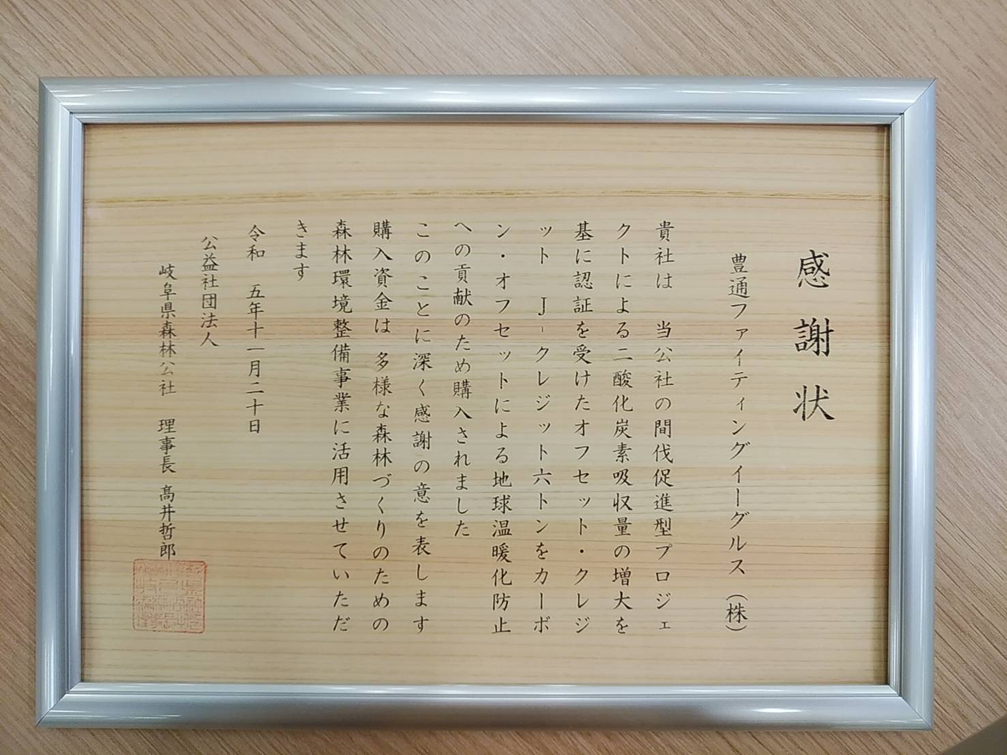 感謝状
豊通ファイティングイーグルス（株）
貴社は　当公社の間伐促進型プロジェ
クトによる二酸化炭素吸収量の増大を
基に認証を受けたオフセット・クレジ
ット　J-クレジット六トンをカーボ
ン・オフセットによる地球温暖化防止
への貢献のため購入されました
このことに深く感謝の意を表します
購入資金は　多様な森林づくりのための
森林環境整備事業に活用させていただ
きます
令和　五年十一月二十日
公益社団法人
岐阜県森林公社　理事長　髙井哲郎